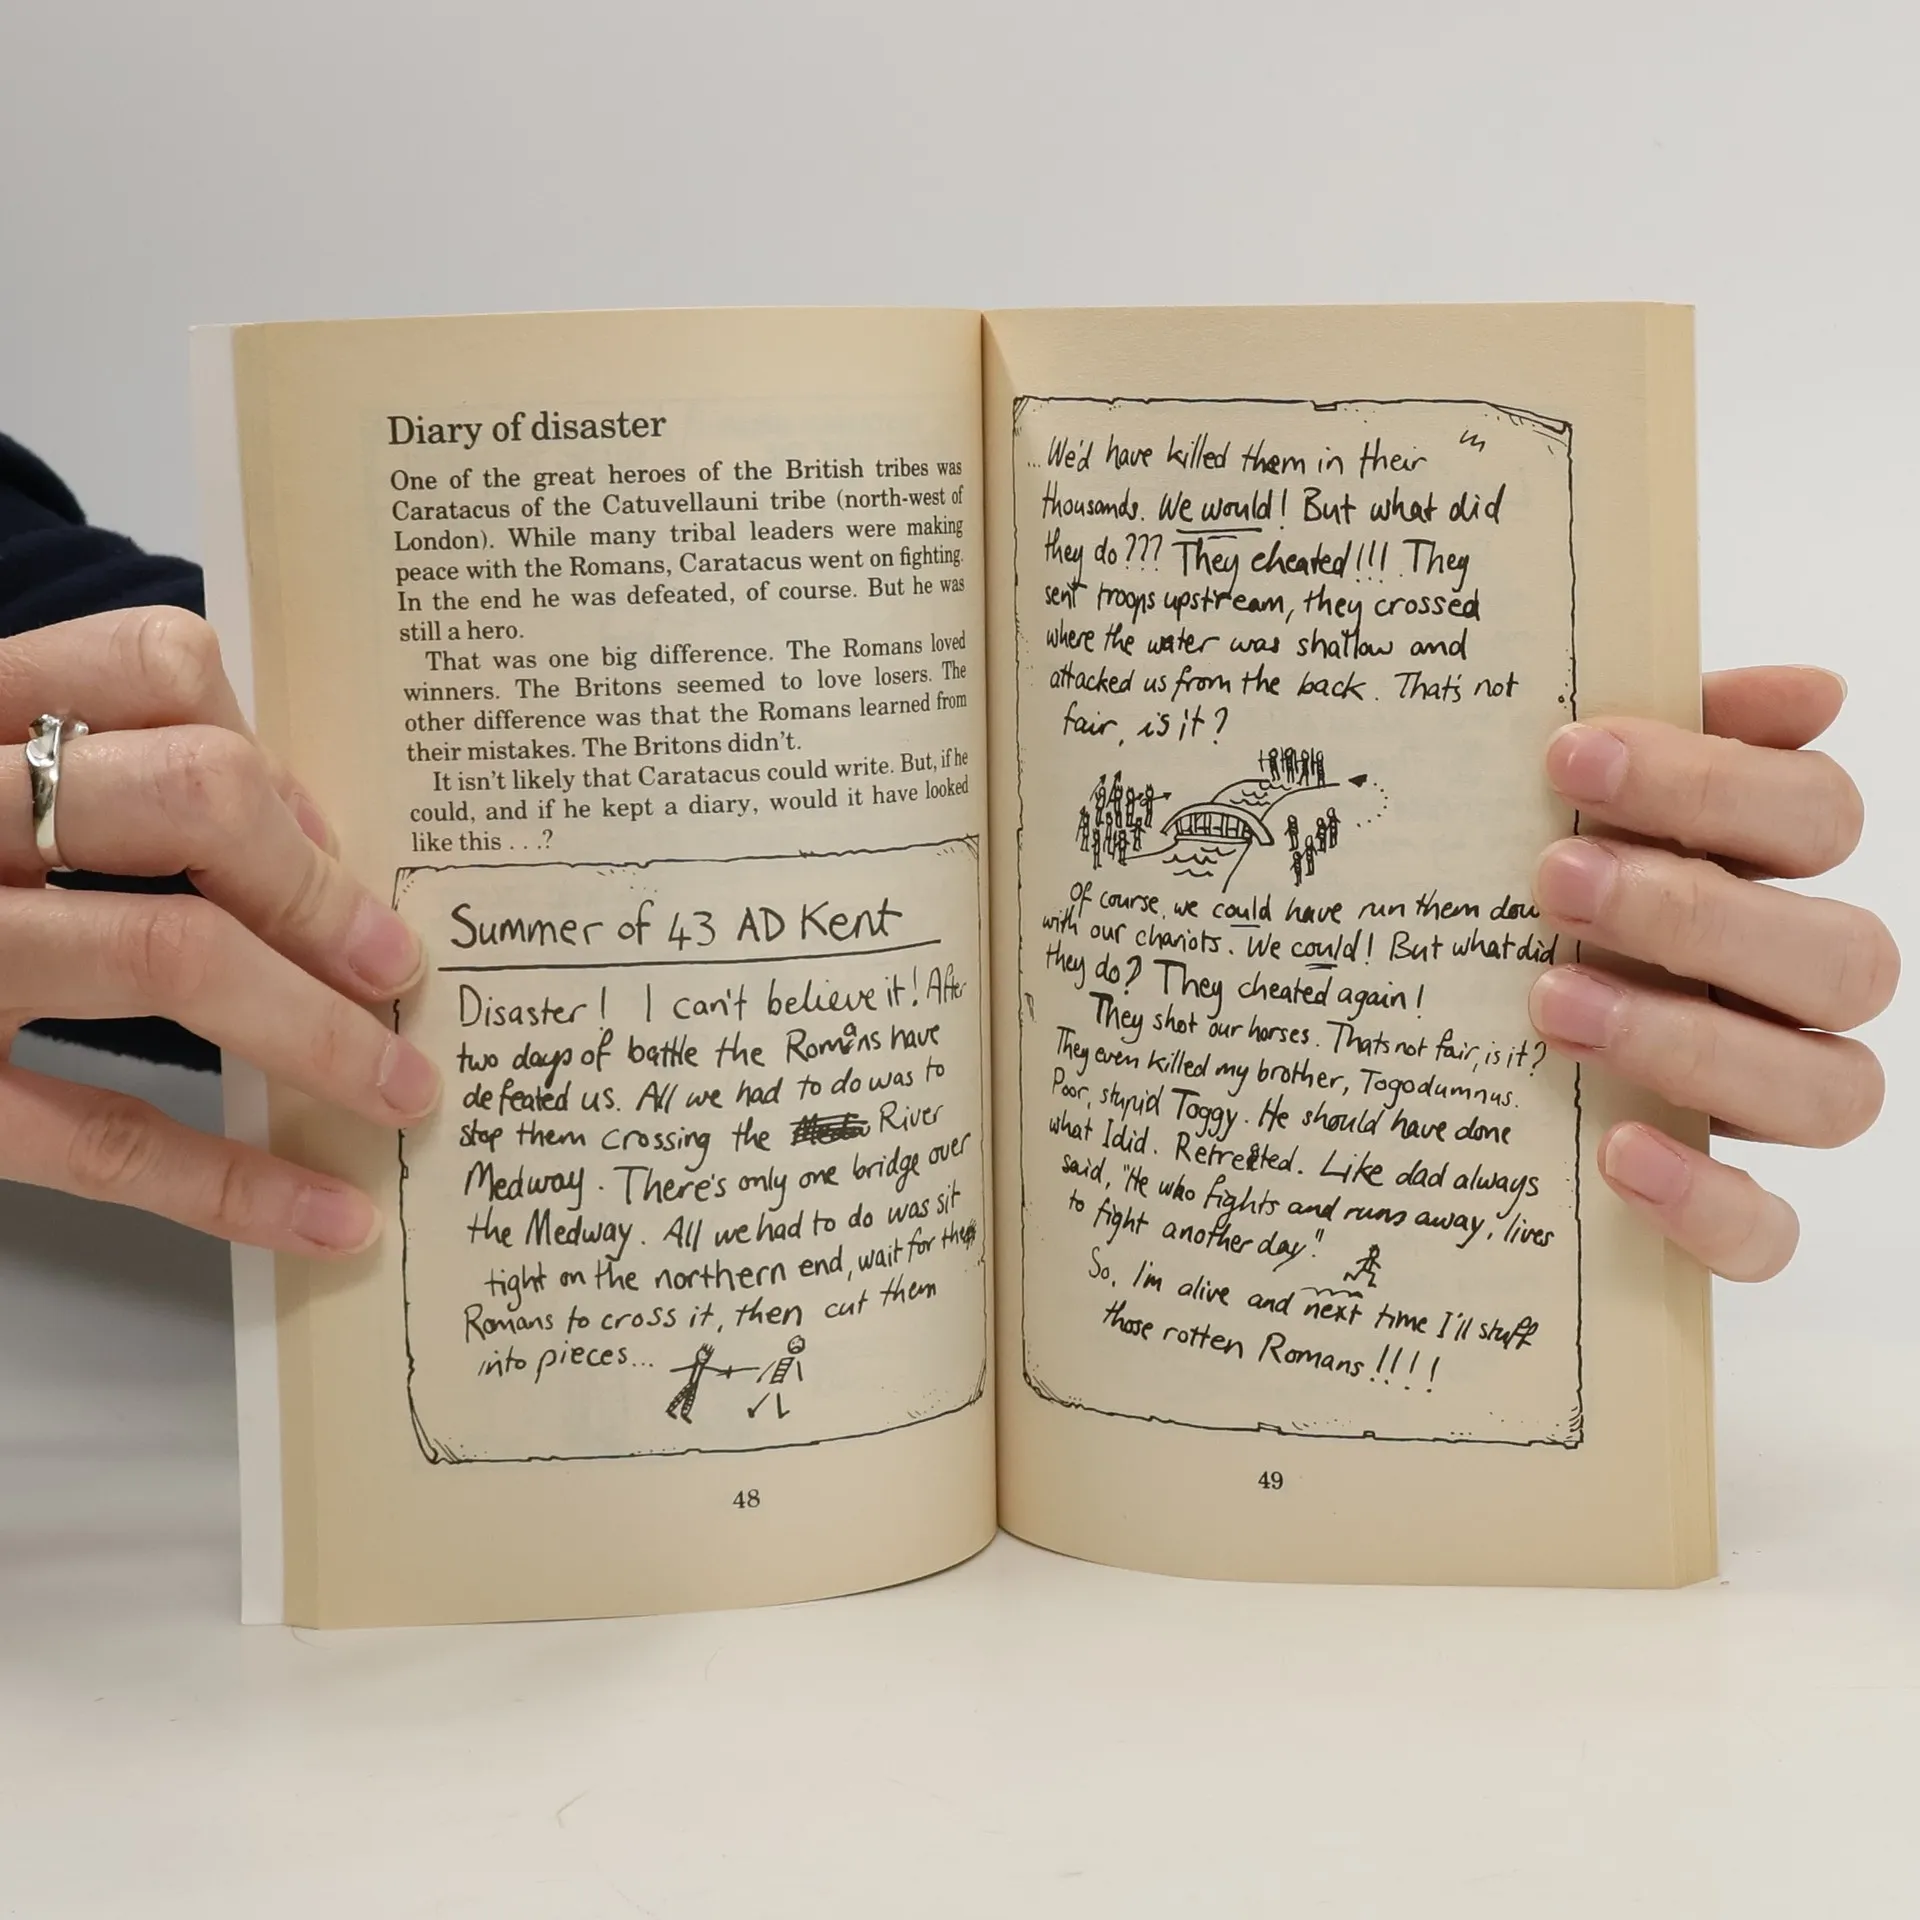 Diary of disaster
One of the great heroes of the British tribes was
Caratacus of the Catuvellauni tribe (north-west of
London). While many tribal leaders were making
peace with the Romans, Caratacus went on fighting.
In the end he was defeated, of course. But he was
still a hero.
That was one big difference. The Romans loved
winners. The Britons seemed to love losers. The
other difference was that the Romans learned from
their mistakes. The Britons didn't.
It isn't likely that Caratacus could write. But, if he
could, and if he kept a diary, would it have looked
like this . . .?
Summer of 43 AD Kent
Disaster! I can't believe it! After
two days of battle the Romans have
defeated us. All we had to do was to
stop them crossing the River
Medway. There's only one bridge over
the Medway. All we had to do was sit
tight on the northern end, wait for the
Romans to cross it, then cut them
into pieces...
48
...We'd have killed them in their
thousands. We would! But what did
they do??? They cheated!!! They
sent troops upstream, they crossed
where the water was shallow and
attacked us from the back. That's not
fair, is it?
Of course, we could have run them dow
with our chariots. We could! But what did
they do? They cheated again!
They shot our horses. Thats not fair, is it?
They even killed my brother, Togodumnus.
Poor, stupid Toggy. He should have done
what I did. Retreated. Like dad always
said, "He who fights and runs away, lives
to fight another day."
So, I'm alive and next time I'll stuff
those rotten Romans!!!!
49